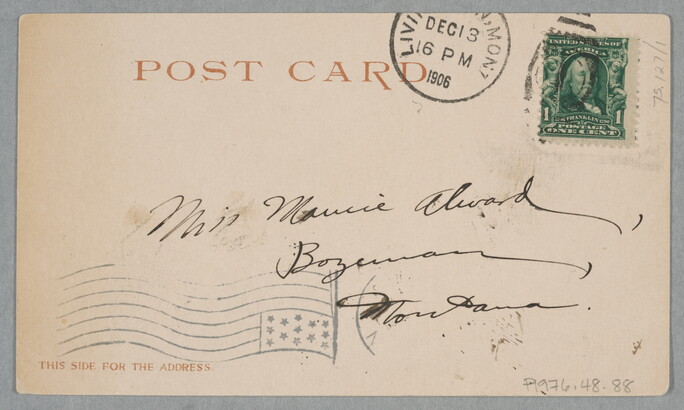 LIVINGSTON, MONT
DEC 13
6 PM
1906
POST CARD
UNITED STATES OF AMERICA
1 FRANKLIN 1
POSTAGE
ONE CENT
75.127/1
Miss Alward,
Bozeman,
Montana.
THIS SIDE FOR THE ADDRESS
P976.48.88